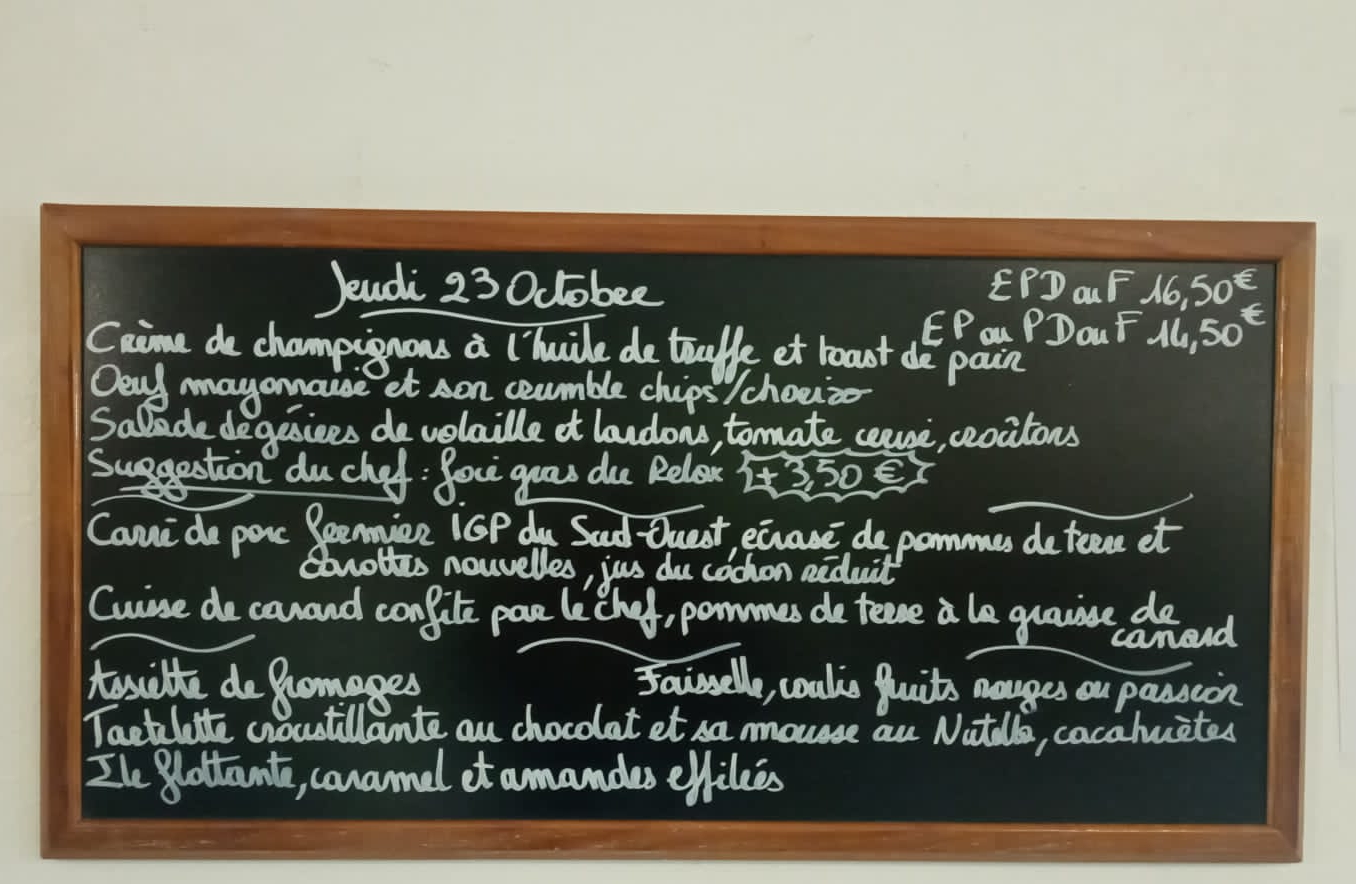 Jeudi 23 Octobre
EPD ou F 16,50€
EP ou PD ou F 14,50€
Crème de champignons à l'huile de truffe et toast de pain
Oeuf mayonnaise et son crumble chips/chorizo
Salade de gésiers de volaille et lardons, tomate cerise, croûtons
Suggestion du chef : foie gras du Relox + 3,50 €
Carré de porc fermier IGP du Sud-Ouest, écrasé de pommes de terre et
carottes nouvelles, jus du cochon réduit
Cuisse de canard confite par le chef, pommes de terre à la graisse de
canard
Assiette de fromages
Faisselle, coulis fruits rouges ou passion
Tartelette croustillante au chocolat et sa mousse au Nutella, cacahuètes
Ile flottante, caramel et amandes effilées